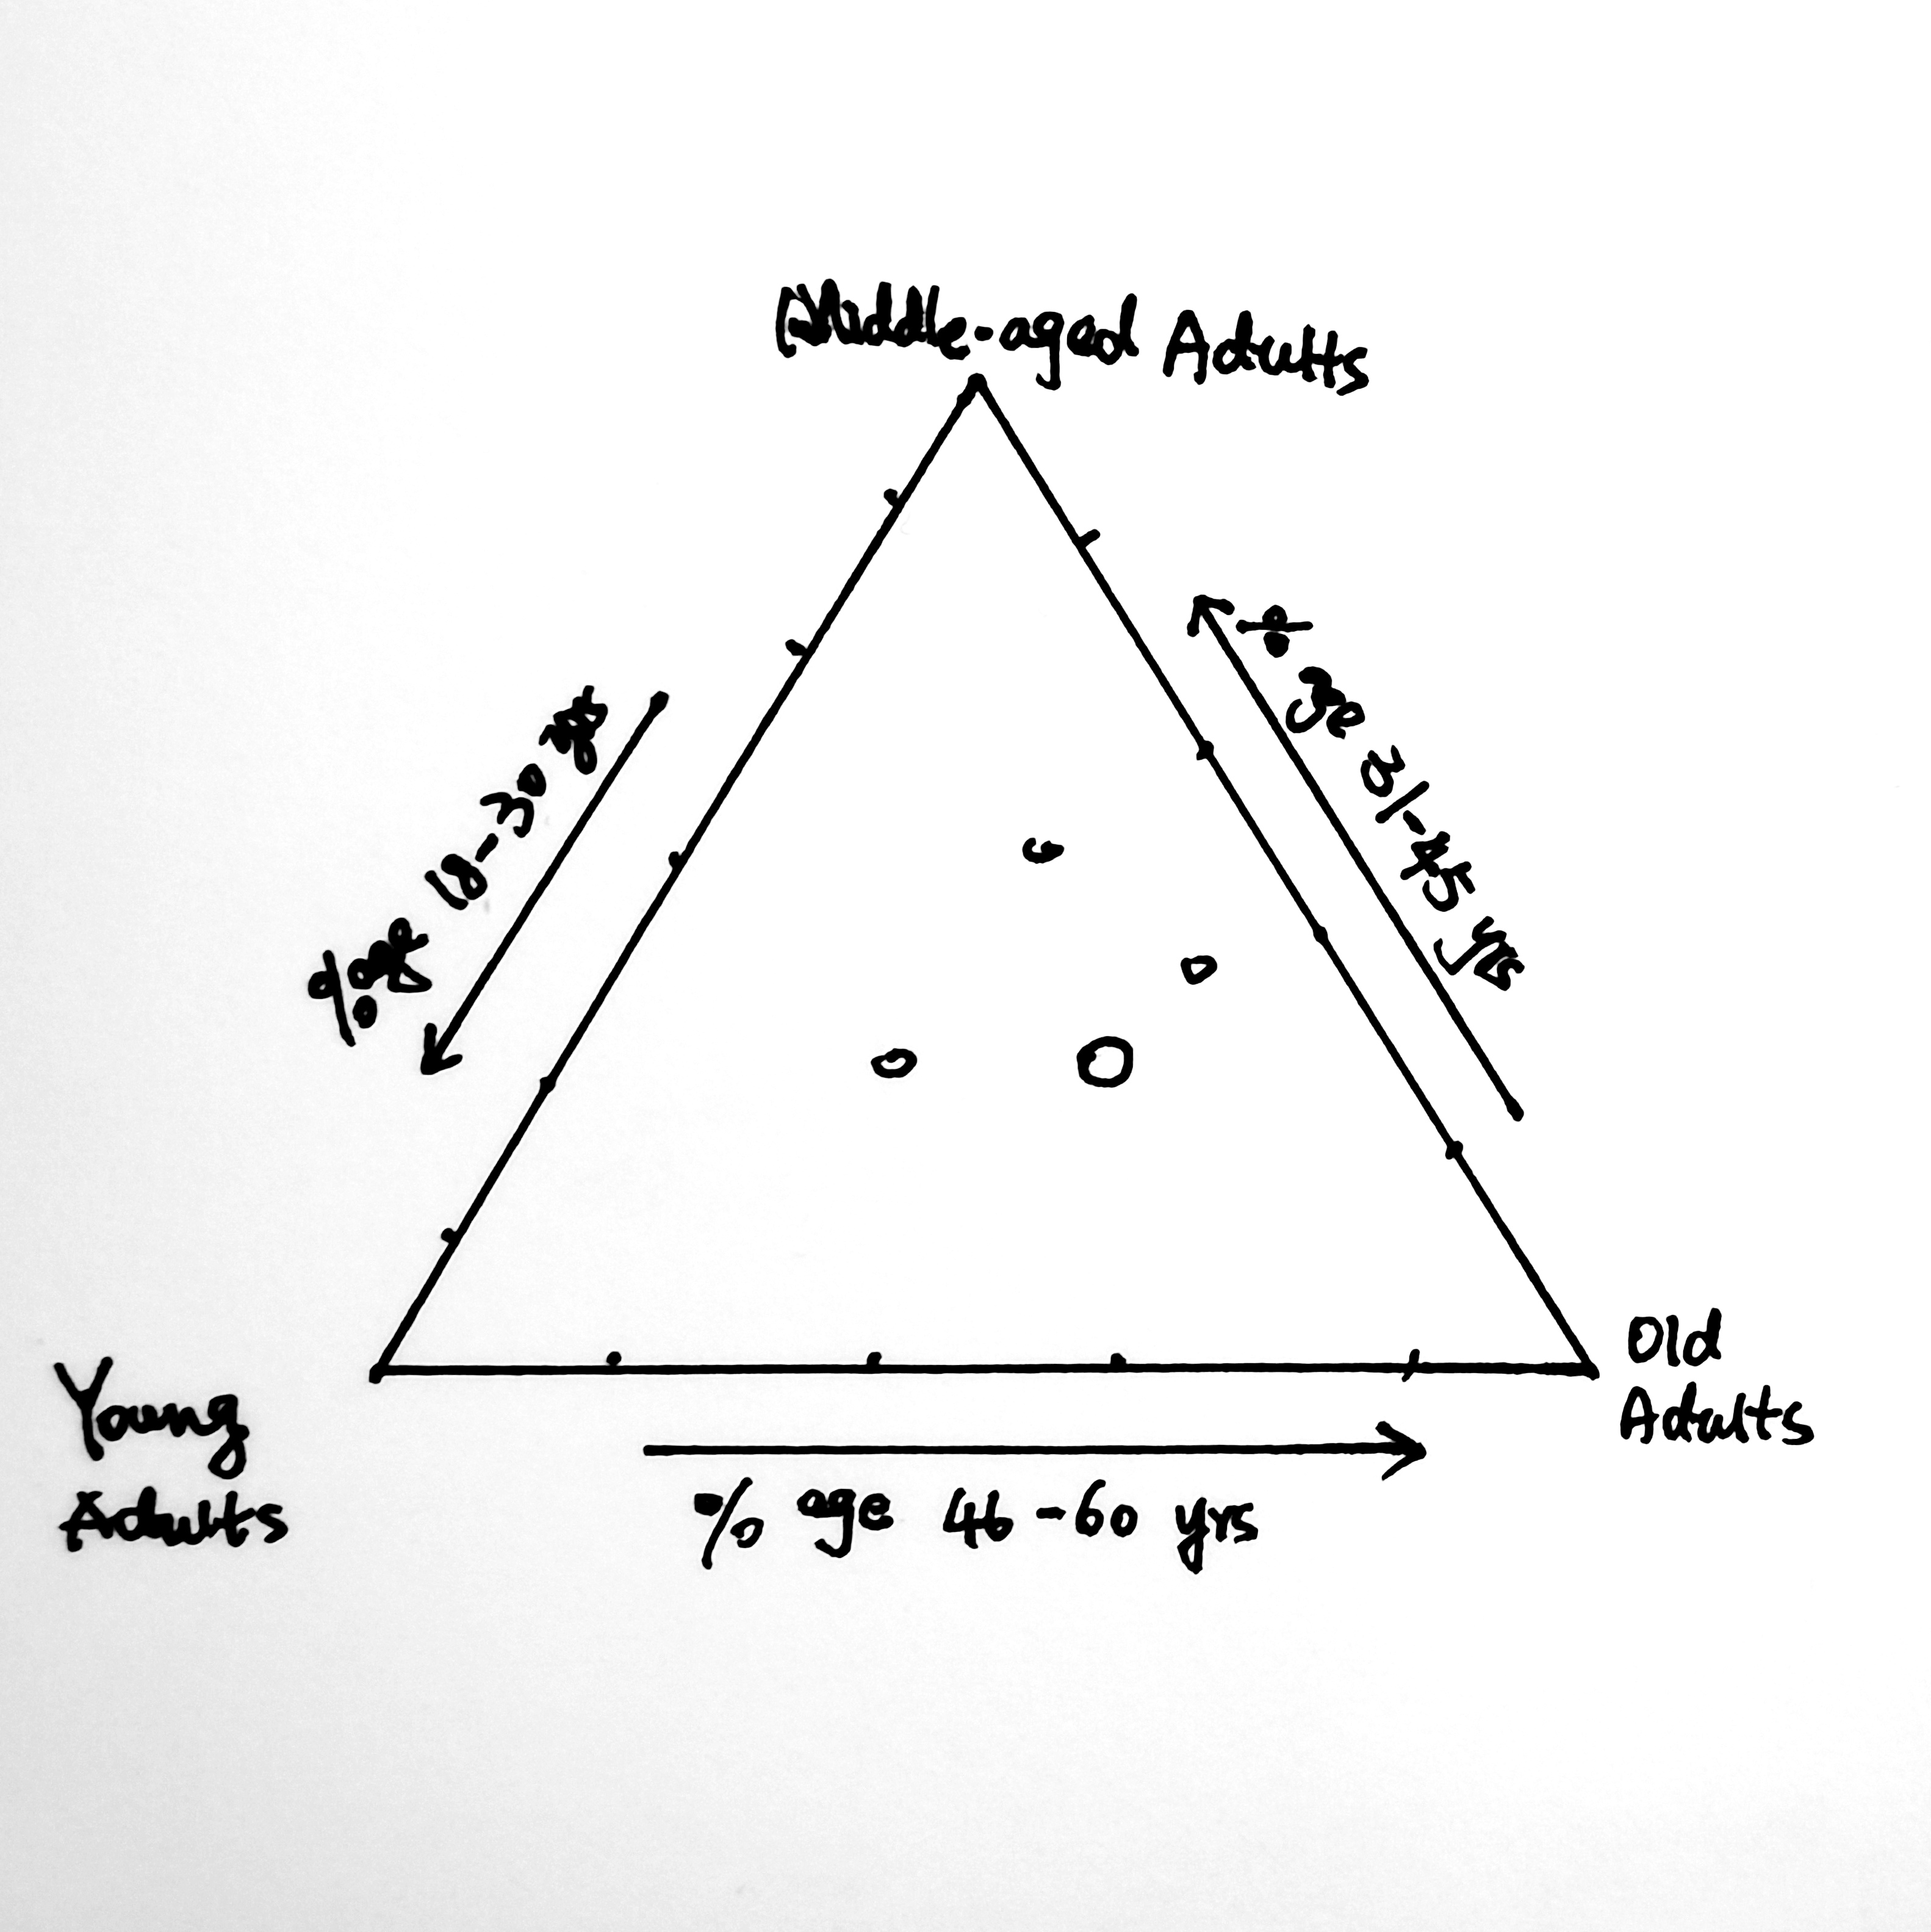 Middle-aged Adults
% age 18-30 yrs
% age 31-45 yrs
Old
Adults
Young
Adults
% age 46-60 yrs